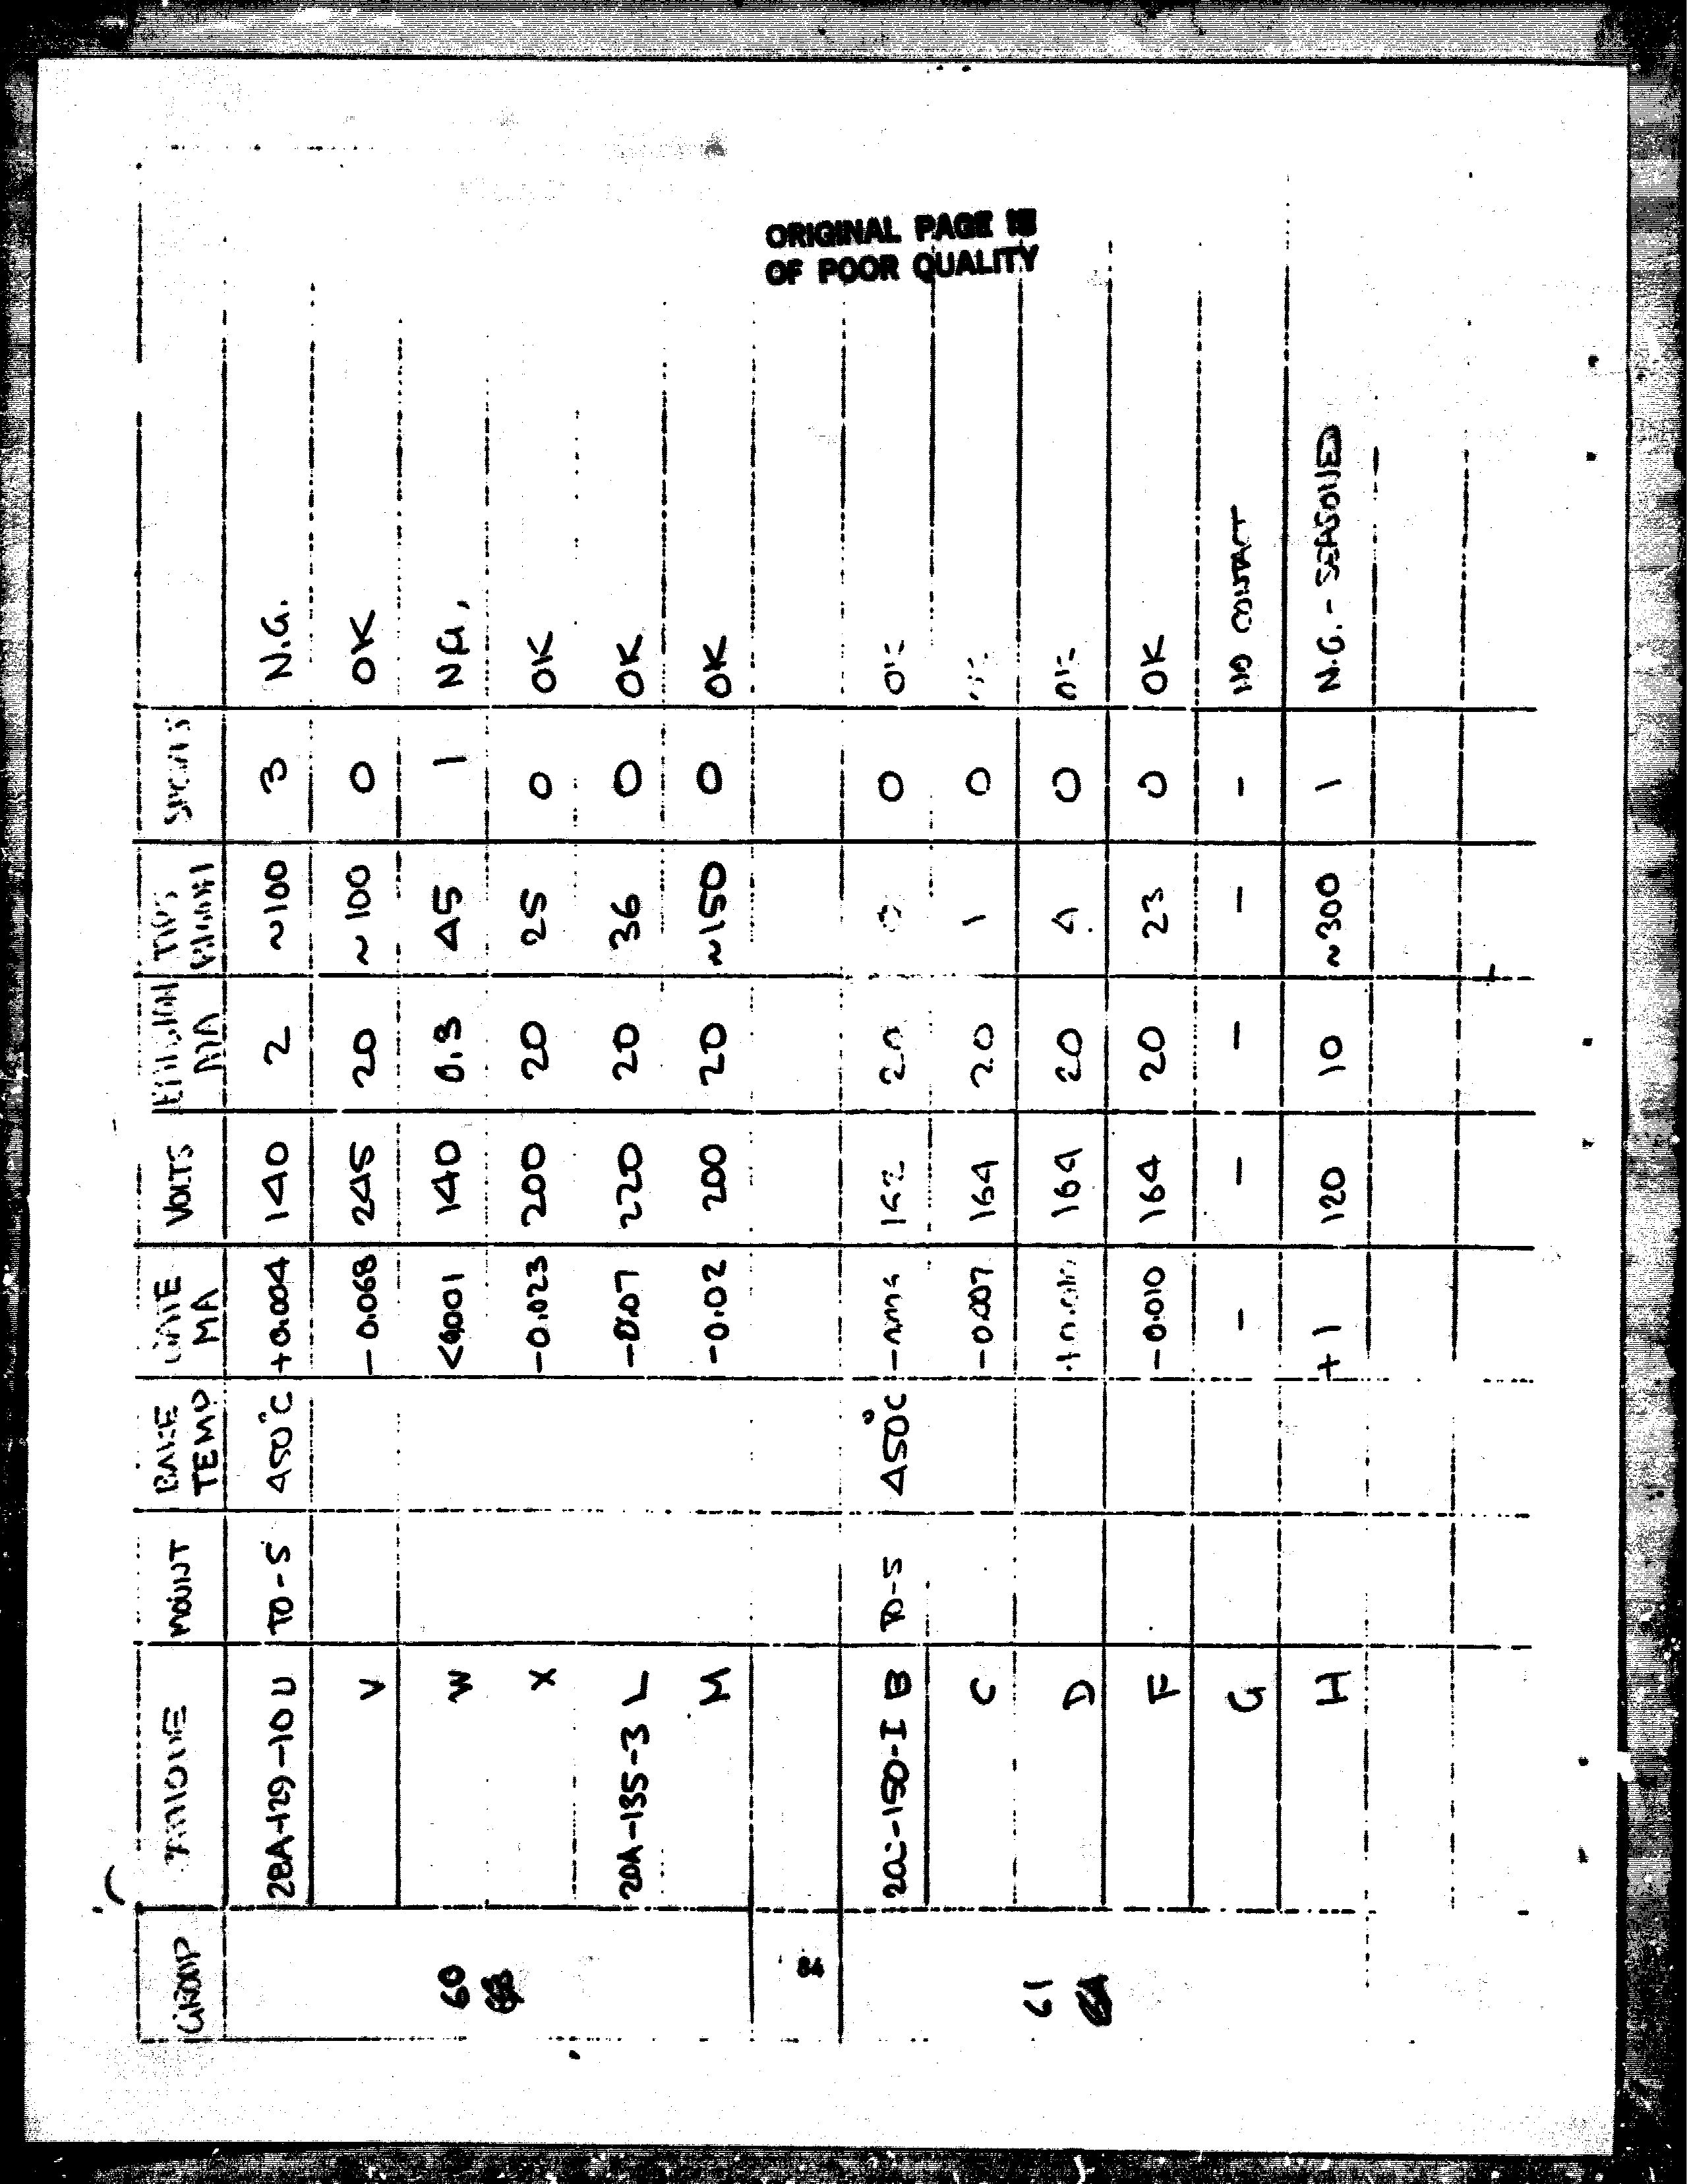 ORIGINAL PAGE IS
OF POOR QUALITY
GROUP MOUNT BAKE TEMP GATE MA VOLTS EMISSION MA TIPS SPOTS
28A-129-10 U TO-5 450°C +0.004 140 2 ~100 3 N.G.
V -0.068 245 20 ~100 0 OK
60 W <0.001 140 0.3 45 1 N.G.
X -0.023 200 20 25 0 OK
20A-135-3 L -0.07 220 20 36 0 OK
M -0.02 200 20 ~150 0 OK
84
20C-150-I B TO-5 450°C 162 20 0 OK
C -0.007 164 20 1 0
61 D 164 20 4 0 OK
F -0.010 164 20 23 0 OK
G - - - - - NO CONTACT
H +1 120 10 ~300 1 N.G. - SEASONED